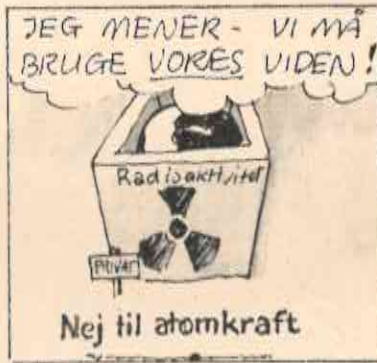 JEG MENER - VI MÅ
BRUGE VORES VIDEN!
Radioaktivitet
Privat
Nej til atomkraft